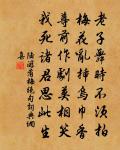 老子舞時不須拍
梅花亂插烏巾香
尊前作劇莫相笑
我死諸君思此狂
陸游看梅絕句詞典網
集